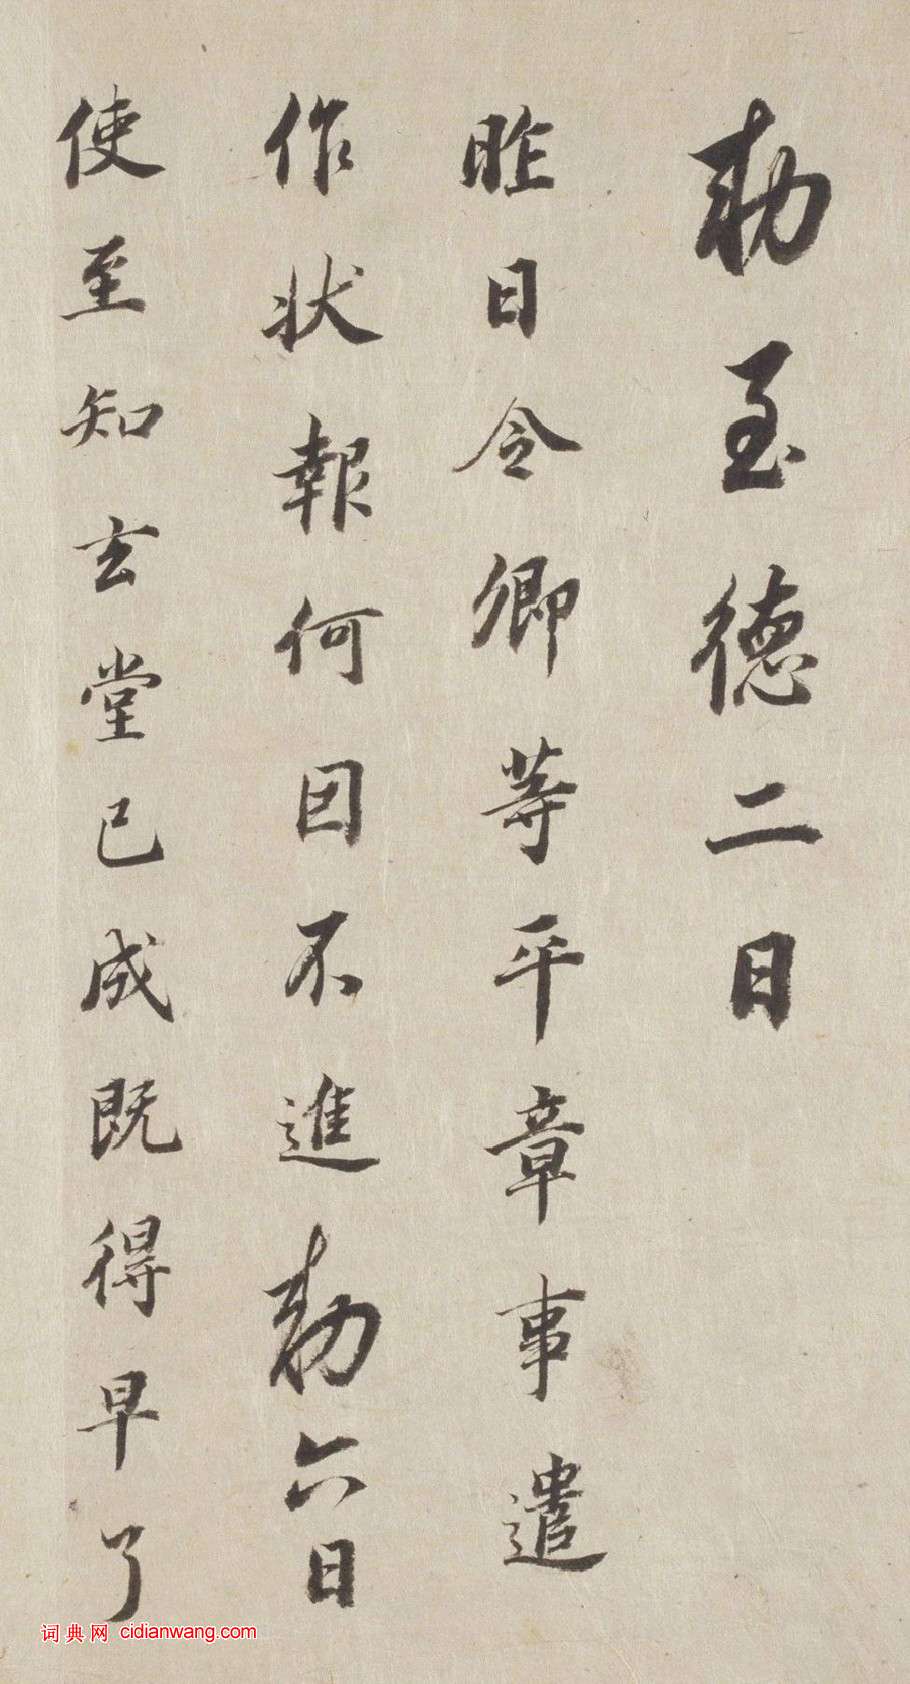 勑至德二日
昨日令卿等平章事遣
作状報何因不進勑六日
使至知玄堂已成既得早了
词典网 cidianwang.com